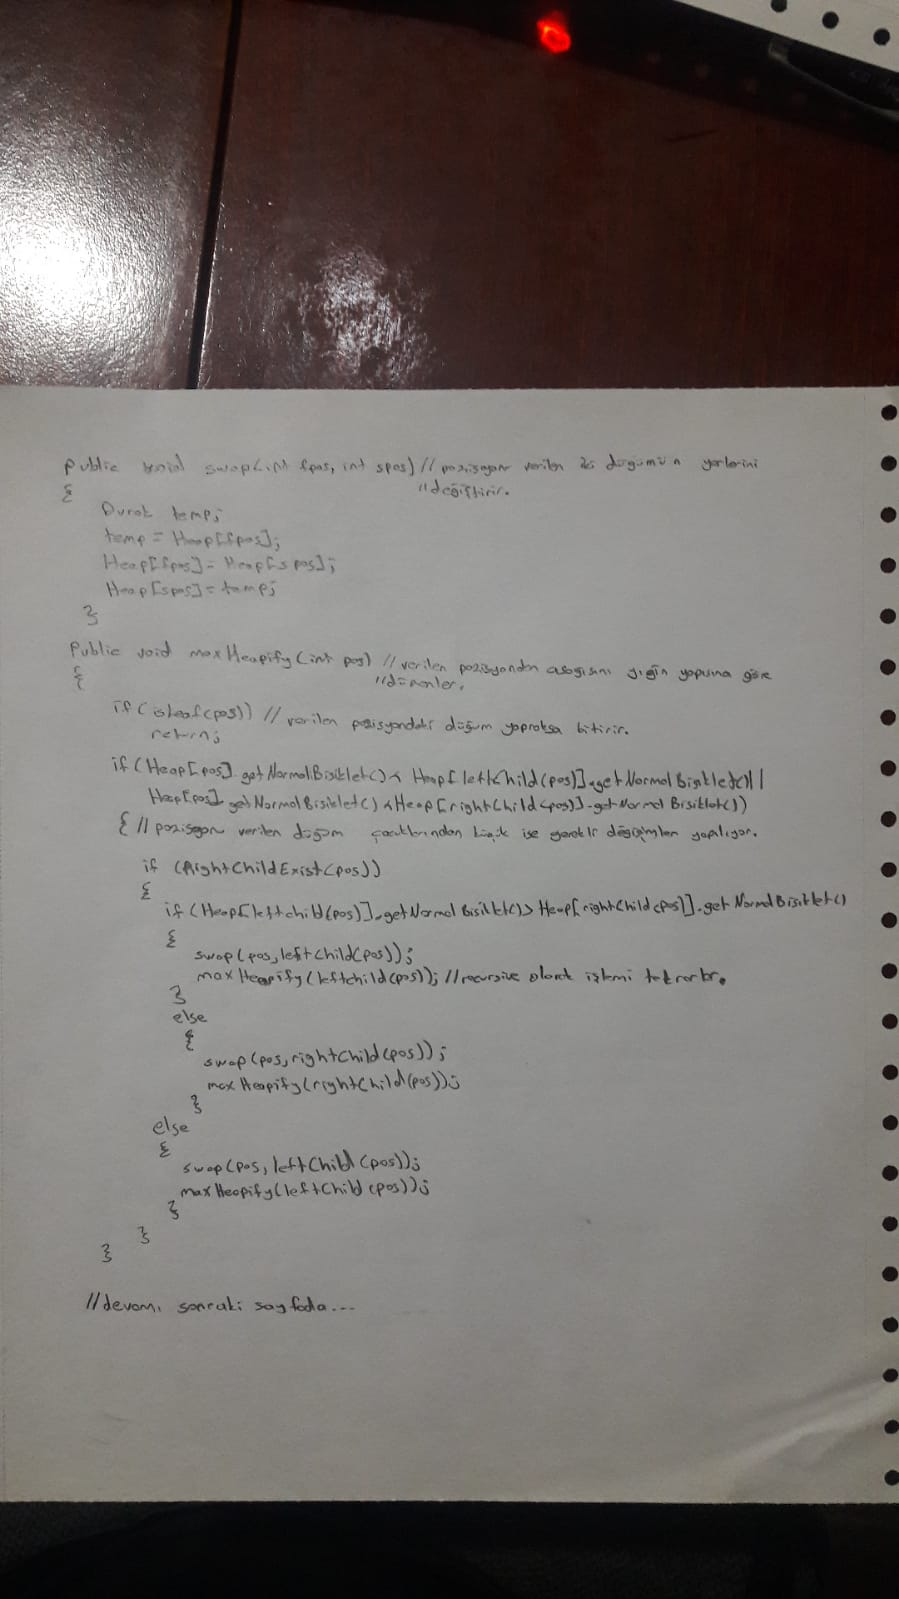 Public void swap(int fpos, int spos) // pozisyonu verilen iki düğümün yerlerini
//değiştirir.
{
Durak temp;
temp = Heap[fpos];
Heap[fpos] = Heap[spos];
Heap[spos] = temp;
}
Public void maxHeapify(int pos) // verilen pozisyondan aşağısını yığın yapısına göre
//düzenler.
{
if(isLeaf(pos)) // verilen pozisyondaki düğüm yapraksa bitirir.
return;
if(Heap[pos].getNormalBisiklet() < Heap[leftChild(pos)].getNormalBisiklet() ||
Heap[pos].getNormalBisiklet() < Heap[rightChild(pos)].getNormalBisiklet())
{ // pozisyon verilen düğüm çocuklarından küçük ise gerekli değişimler yapılıyor.
if (RightChildExist(pos))
{
if(Heap[leftchild(pos)].getNormalBisiklet() > Heap[rightChild(pos)].getNormalBisiklet()
{
swap(pos,leftChild(pos));
maxHeapify(leftchild(pos)); //recursive olarak işlemi tekrarlar.
}
else
{
swap(pos,rightChild(pos));
maxHeapify(rightChild(pos));
}
else
{
swap(pos,leftChild(pos));
maxHeapify(leftChild(pos));
}
}
}
//devamı sonraki sayfada...